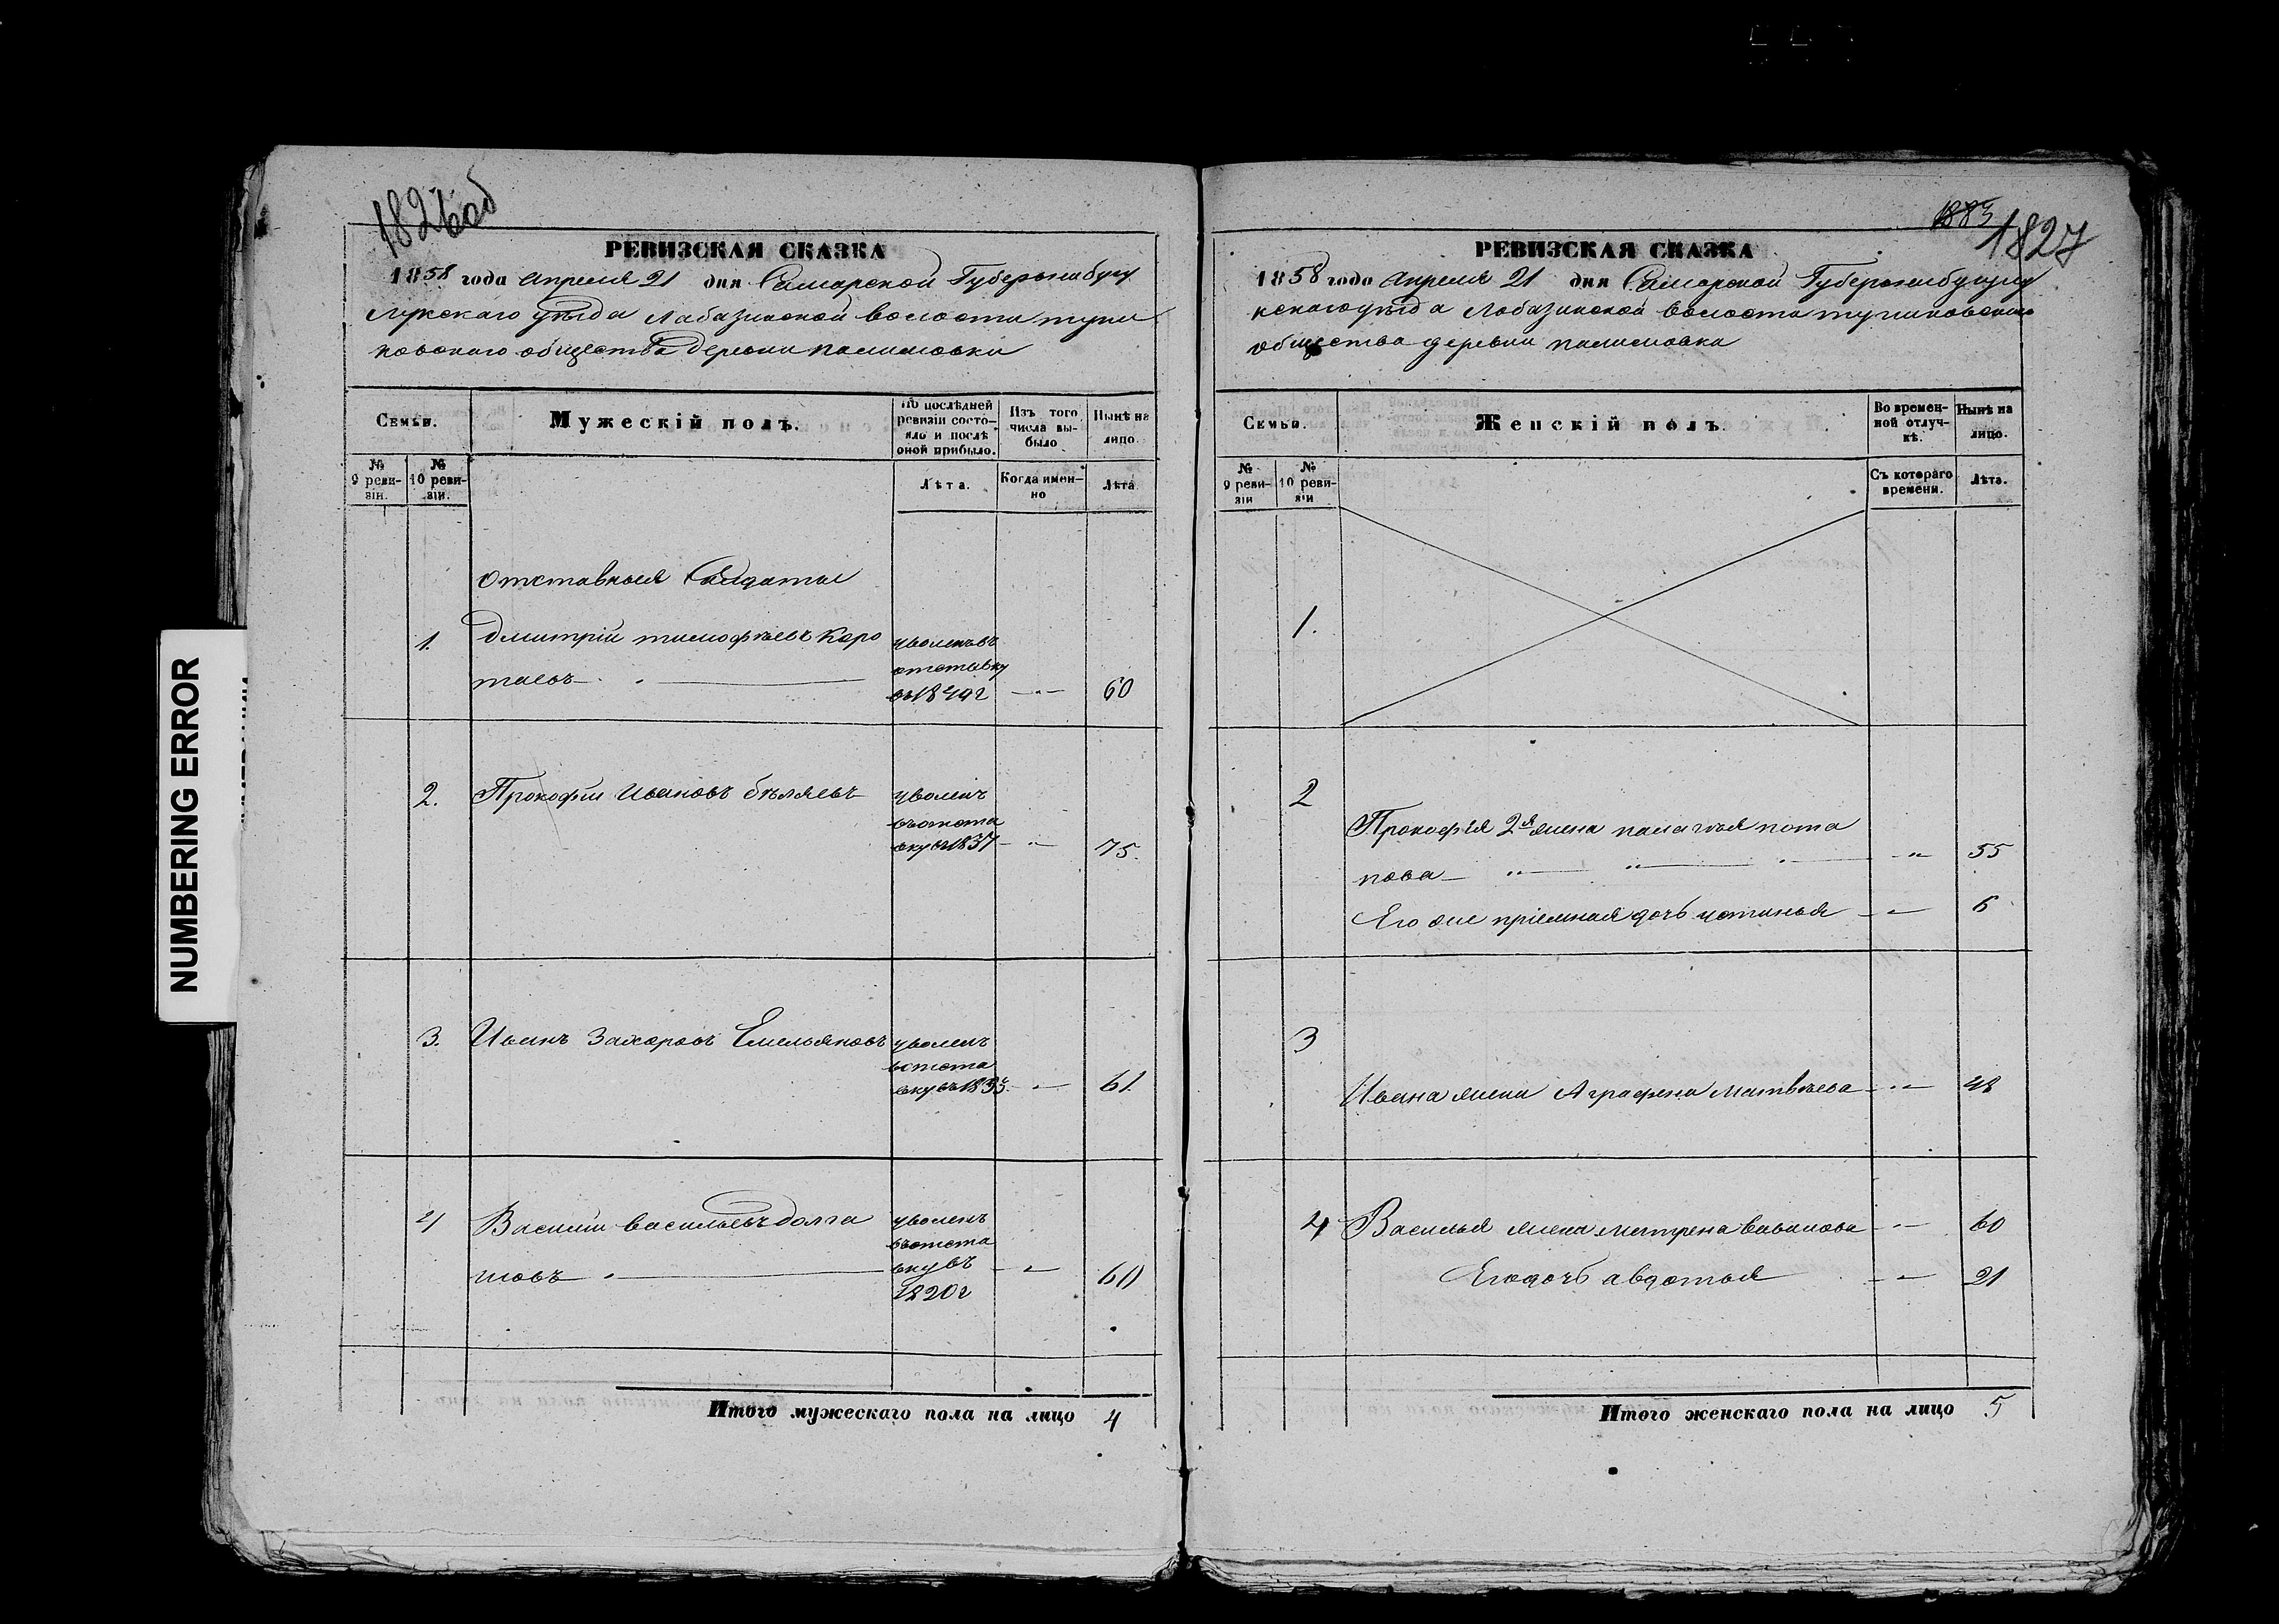 NUMBERING ERROR
1826 об
РЕВИЗСКАЯ СКАЗКА
1858 года апреля 21 дня Самарской Губернибугу
лукскаго уѣзда Лабазинской волости тупи
ковскаго общества деревни палимовки
Семьи.
Мужескій полъ.
По послѣдней ревизіи состояло и послѣ оной прибыло.
Изъ того числа выбыло
Нынѣ на лицо.
№ 9 ревизіи.
№ 10 ревизіи.
Лѣта.
Когда именно
Лѣта
Отставныя Салдаты
1. Дмитрій тимофѣевъ Коро
таевъ
уволенъвъ
отставку
въ 1840г
60
2. Прокофій Ивановъ бѣляевъ
уволенъ
въотста
вкувъ1837
75.
3. Иванъ Захаровъ Емельяновъ
уволенъ
вотста
вкувъ1835.
61
4 Василій васильевъ долга
шовъ
уволенъ
въотста
вкувъ
1820г
60
Итого мужескаго пола на лицо 4
1883
1827
РЕВИЗСКАЯ СКАЗКА
1858 года апреля 21 дня Самарской Губернибугулу
кскагоуѣзда Лабазинской волости тупиковскаго
общества деревни палимовка
Семьи.
Женскій полъ.
Во временной отлучкѣ.
Нынѣ на лицо.
№ 9 ревизіи
№ 10 ревизіи
Съ котораго времени.
Лѣта.
1.
2
Прокофья 2я жена палагѣя пота
пова
55
Его же пріемная дочь устинья 6
3
Ивана жена Аграфена Матвѣева 48
4 Василья жена матрена Иванова 60
Егодочь авдотья 21
Итого женскаго пола на лицо 5